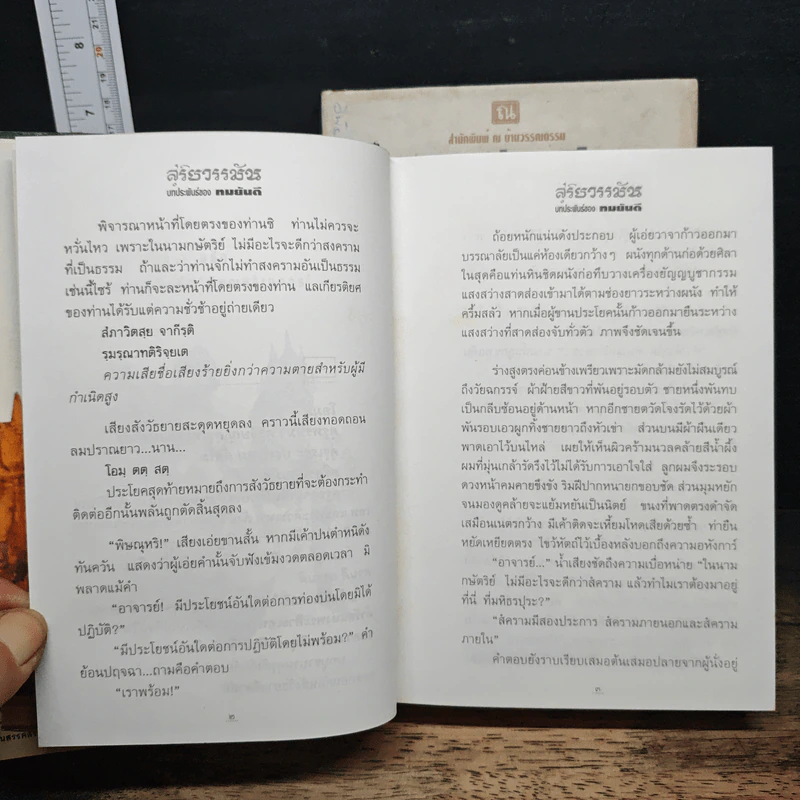 สำนักพิมพ์ ณ บ้านวรรณกรรม
สุริยวรรมัน
บทประพันธ์ของ ทมยันตี
พิจารณาหน้าที่โดยตรงของท่านซิ ท่านไม่ควรจะ
หวั่นไหว เพราะในนามกษัตริย์ ไม่มีอะไรจะดีกว่าสงคราม
ที่เป็นธรรม ถ้าและว่าท่านจักไม่ทำสงครามอันเป็นธรรม
เช่นนี้ไซร้ ท่านก็จะละหน้าที่โดยตรงของท่าน แลเกียรติยศ
ของท่านได้รับแต่ความชั่วช้าอยู่ถ่ายเดียว
สํภาวิตสฺย จากีรฺติ
รฺมรฺณาทติริจฺยเต
ความเสียชื่อเสียงร้ายยิ่งกว่าความตายสำหรับผู้มี
กำเนิดสูง
เสียงสังวัธยายสะดุดหยุดลง คราวนี้เสียงทอดถอน
ลมปราณยาว...นาน...
โอมฺ ตตฺ สตฺ
ประโยคสุดท้ายหมายถึงการสังวัธยายที่จะต้องกระทำ
ติดต่ออีกนั้นพลันถูกตัดสิ้นสุดลง
“พิษณุหริ!” เสียงเอ่ยขานสั้น หากมีเค้าปนตำหนิดัง
ทันควัน แสดงว่าผู้เอ่ยคำนั้นจับฟังเข้มงวดตลอดเวลา มิ
พลาดแม้คำ
“อาจารย์! มีประโยชน์อันใดต่อการท่องบ่นโดยมิได้
ปฏิบัติ?”
“มีประโยชน์อันใดต่อการปฏิบัติโดยไม่พร้อม?” คำ
ย้อนปฤจฉา...ถามคือคำตอบ
“เราพร้อม!”
๒
สุริยวรรมัน
บทประพันธ์ของ ทมยันตี
ถ้อยหนักแน่นดังประกอบ ผู้เอ่ยวาจาก้าวออกมา
บรรณาลัยเป็นแค่ห้องเดียวกว้างๆ ผนังทุกด้านก่อด้วยศิลา
ในสุดคือแท่นหินชิดผนังก่อทึบวางเครื่องยัญญบูชากรรม
แสงสว่างสาดส่องเข้ามาได้ตามช่องยาวระหว่างผนัง ทำให้
ครึ้มสลัว หากเมื่อผู้ขานประโยคนั้นก้าวออกมายืนระหว่าง
แสงสว่างที่สาดส่องจับทั่วตัว ภาพจึงชัดเจนขึ้น
ร่างสูงตรงค่อนข้างเพรียวเพราะมัดกล้ามยังไม่สมบูรณ์
ถึงวัยฉกรรจ์ ผ้าฝ้ายสีขาวที่พันอยู่รอบตัว ชายหนึ่งพันทบ
เป็นกลีบซ้อนอยู่ด้านหน้า หากอีกชายตวัดโจงรัดไว้ด้วยผ้า
พันรอบเอวผูกทิ้งชายยาวถึงหัวเข่า ส่วนบนมีผ้าผืนเดียว
พาดเอาไว้บนไหล่ เผยให้เห็นผิวคร้ามนวลคล้ายสีน้ำผึ้ง
ผมที่มุ่นเกล้ารัดรึงไว้ไม่ได้รับการเอาใจใส่ ลูกผมจึงระรอบ
ดวงหน้าคมคายขึงขัง ริมฝีปากหนายกขอบชัด ส่วนมุมหยัก
จนมองดูคล้ายจะแย้มหยันเป็นนิตย์ ขนงที่พาดตรงดำจัด
เสมือนเนตรกว้าง มีเค้าติดจะเหี้ยมโหดเสียด้วยซ้ำ ท่ายืน
หยัดเหยียดตรง ไขว้หัตถ์ไว้เบื้องหลังบอกถึงความอหังการ์
“อาจารย์...” น้ำเสียงชัดถึงความเบื่อหน่าย “ในนาม
กษัตริย์ ไม่มีอะไรจะดีกว่าสงคราม แล้วทำไมเราต้องมาอยู่
ที่นี่ ที่มหิธรปุระ?”
“สงครามมีสองประการ สงครามภายนอกและสงคราม
ภายใน”
คำตอบยังราบเรียบเสมอต้นเสมอปลายจากผู้นั่งอยู่
๓
7
8